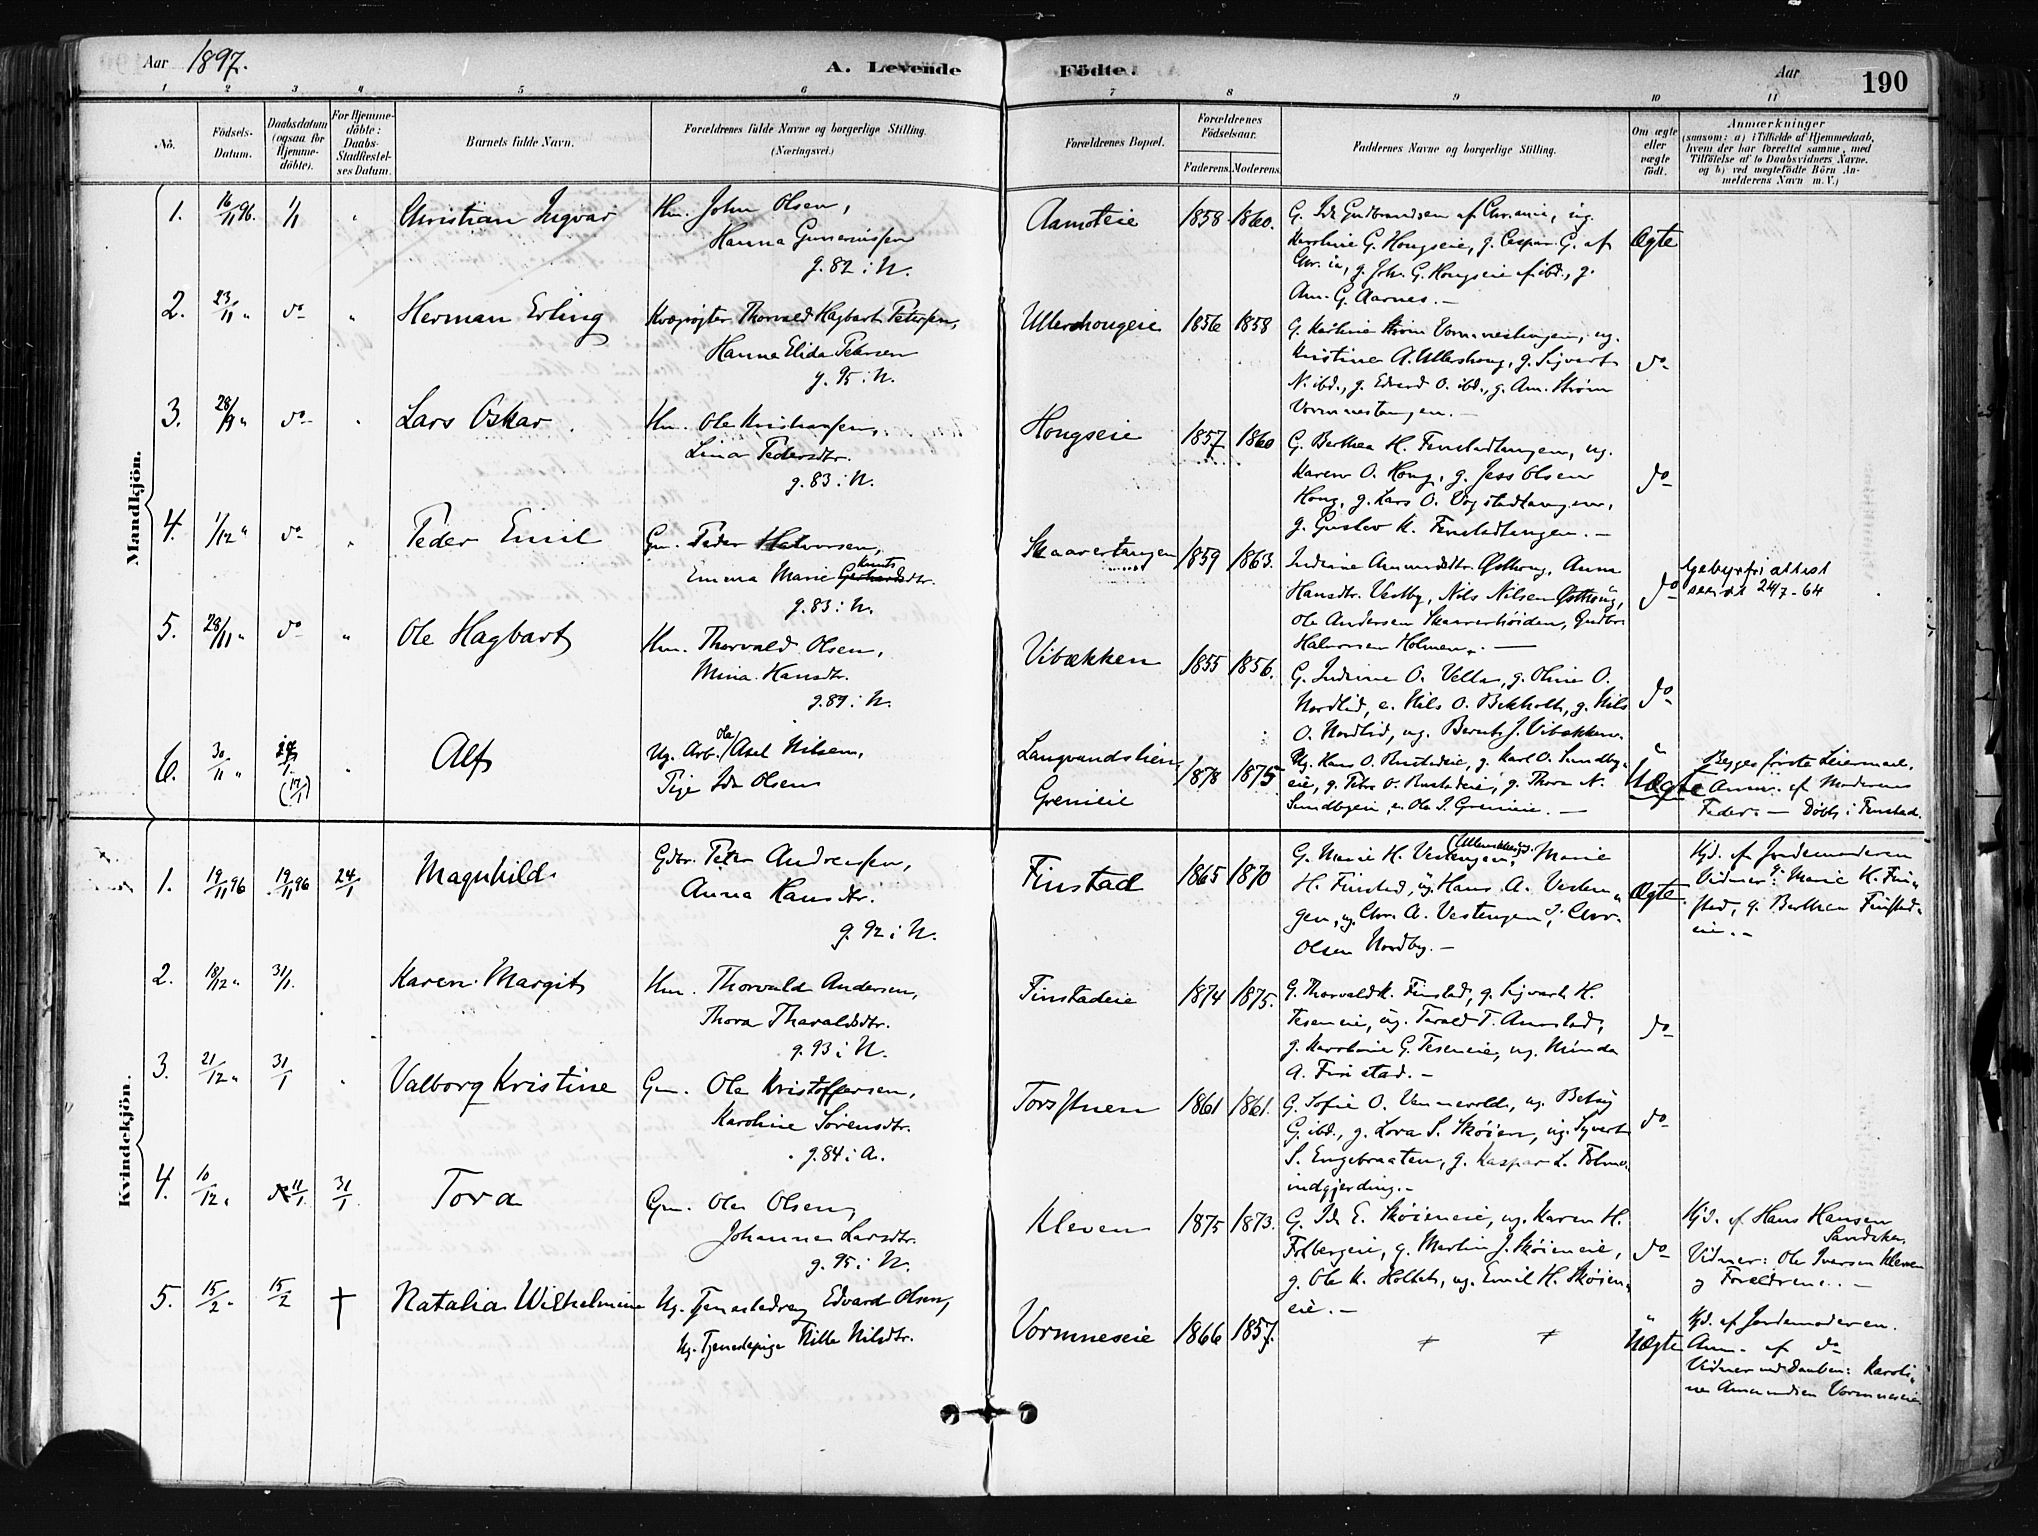 Aar 1897.
A. Levende
Födte.
Aar
190
1 2 3 4 5 6 7 8 9 10 11
No.
Födsels-
Datum.
Daabsdatum
(ogsaa for
Hjemme-
döbte).
For Hjemme-
döbte:
Daabs-
Stadfestel-
ses Datum.
Barnets fulde Navn.
Forældrenes fulde Navne og borgerlige Stilling.
(Næringsvei.)
Forældrenes Bopæl.
Forældrenes
Födselsaar.
Faderens. Moderens.
Faddernes Navne og borgerlige Stilling.
Om ægte
eller
uægte
födt.
Anmærkninger
(saasom: a) i Tilfælde af Hjemmedaab,
hvem der har forrettet samme, med
Tilföielse af to Daabsvidners Navne.
og b) ved uægtefödte Börn An-
melderens Navn m. V.)
Mandkjön.
1. 16/11 96. 1/1 " Christian Ingvar
Hm. John Olsen,
Hanna Guneriussen
g. 82 i N.
Aamoteie 1858 1860.
G. Ida Gudbrandsen af Chr.ania, ug.
Karoline G. Hougseie, g. Caspar G. af
Chr.ia, g. Joh. G. Hougseie af ibd., g.
Am. G. Aarnes. —
Ægte
2. 23/11 " do " Herman Erling
Kvægrøgter Thorvald Hagbart Petersen,
Hanna Elida Petersen
g. 95 i N.
Ullershougeie 1856 1858
Kristine A. Ullershoug, g. Sigvart
N. ibd., g. Edvard O. ibd., g. Am. Strøm
Vormnestangen. —
do
3. 28/9 " do " Lars Oskar
Hm. Ole Kristiansen,
Lina Pedersdtr.
g. 83 i N.
Hougseie 1857 1860
G. Berthea H. Finstadtangen, ug.
Karen O. Houg, g. Jess Olsen
Houg, g. Lars O. Vogstadtangen,
g. Gustav K. Finstadtangen. —
do
4. 1/12 " do " Peder Emil
Gm. Peder Halvorsen,
Knuts
Emma Marie Gerhardsdtr.
g. 83 i N.
Skaarertangen 1859 1863.
Indiane Amundsdtr. Østhoug, Anna
Hansdtr. Vestby, Nils Nilsen Østhoug,
Ole Andersen Skaarerhøiden, Gudbr.
Halvorsen Holmen. —
do
Gebyrfri attest
sendt 24/7-64
5. 28/11 " do " Ole Hagbart
Hm. Thorvald Olsen,
Mina Hansdtr.
g. 89 i N.
Vibækken 1855 1856.
G. Indiane O. Vella, g. Oline O.
Nordlid, e. Nils O. Bekholt, g. Nils
O. Nordlid, ug. Bernt J. Vibækken.
do
6. 30/11 " (17/1) " Alf
Ug. Arb. Ole Axel Nilsen,
Pige Ida Olsen
Langvandslien
Grenieie
1878 1875
Ug. Hans O. Rustadeie, g. Karl O. Sundby-
eie, g. Petra O. Rustadeie, g. Thora N.
Sundbyeie, e. Ole I. Grenieie. —
Uægte
Begges første Leiermaal.
Anm. af Moderens
Fader. — Døbt i Finstad.
Kvindekjön.
1. 19/11 96 19/11 96 24/1 Magnhild.
Gdbr. Peter Andreassen,
Anna Hansdtr.
g. 92 i N.
Finstad 1865 1870
G. Marie H. Vestengen, Marie
H. Finstad, ug. Hans A. Vesten-
gen, ug. Chr. A. Vestengen, Chr.
Olsen Nordby. —
Ægte
Hjd. af Jordemoderen
Vidner: Marie H. Fin-
stad, g. Berthea Finstad-
eie. —
2. 18/12 " 31/1. " Karen Margit
Hm. Thorvald Andersen,
Thora Tharaldsdtr.
g. 93 i N.
Finstadeie 1874 1875.
G. Thorvald K. Finstad, g. Sigvart H.
Teseneie, ug. Tarald T. Aamstad,
g. Karoline G. Teseneie, ug. Minda
A. Finstad. —
do
3. 21/12 " 31/1 " Valborg Kristine
Gm. Ole Kristoffersen,
Karoline Sørensdtr.
g. 84 i A.
1861 1861.
G. Sofie O. Vennevold, ug. Betsy
G. ibd., g. Lova S. Skøien, ug. Syvert
S. Engebraaten, g. Kaspar L. Folmo-
indgjerding. —
do
4. 10/12 " 11/1. 31/1 Tora
Gm. Ole Olsen,
Johanna Larsdtr.
g. 95 i N.
Kleven 1875 1873.
G. Ida E. Skøieneie, ug. Karen H.
Folbergeie, g. Martin J. Skøieneie,
g. Ole K. Holtet, ug. Emil H. Skøien-
eie. —
do
Hjd. af Hans Hansen
Sandaker
Vidner: Ole Iversen Kleven
g Forældrene. —
5. 15/2 " 15/2 † Natalia Wilhelmine
Ug. Tjenestedreng Edvard Olsen,
Ug. Tjenestepige Nille Nilsdtr.
Vormneseie 1866 1857.
Uægte
Hjd. af Jordemoderen.
Anm. af do
Vidner ved Daaben: Karoli-
ne Amundsen Vormneseie